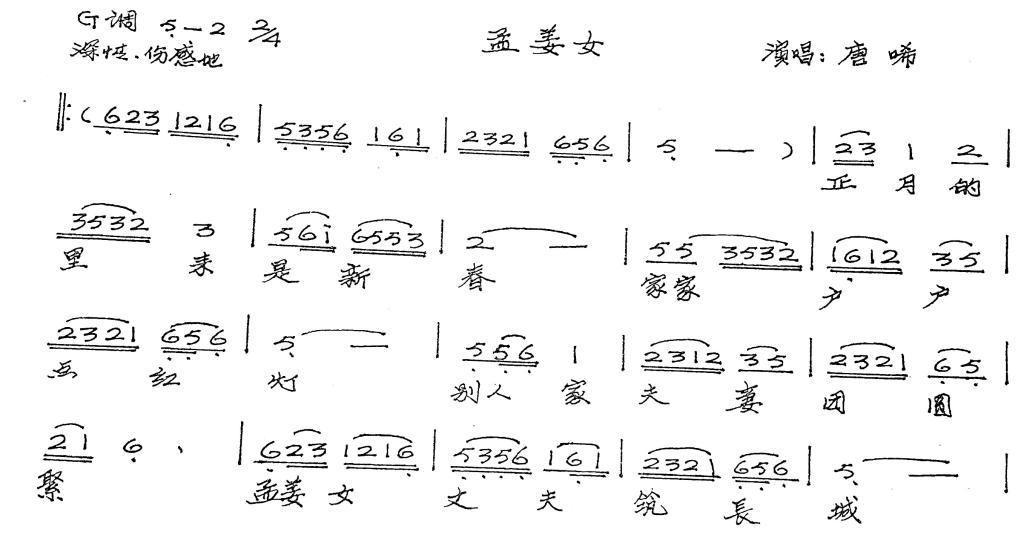 G调 5—2 2/4 孟姜女
深情.伤感地 演唱：唐 唏
‖:( 623 1216 | 5356 161 | 2321 656 | 5 — ) | 23 1 2 |
正 月 的
3532 3 | 561 6553 | 2 — | 55 3532 | 1612 35 |
里 来 是 新 春 家家 户 户
2321 656 | 5 — | 556 1 | 2312 35 | 2321 65 |
点 红 灯 别人 家 夫 妻 团 圆
21 6 、 | 623 1216 | 5356 161 | 2321 656 | 5 — |
聚 孟姜 女 丈 夫 筑 長 城